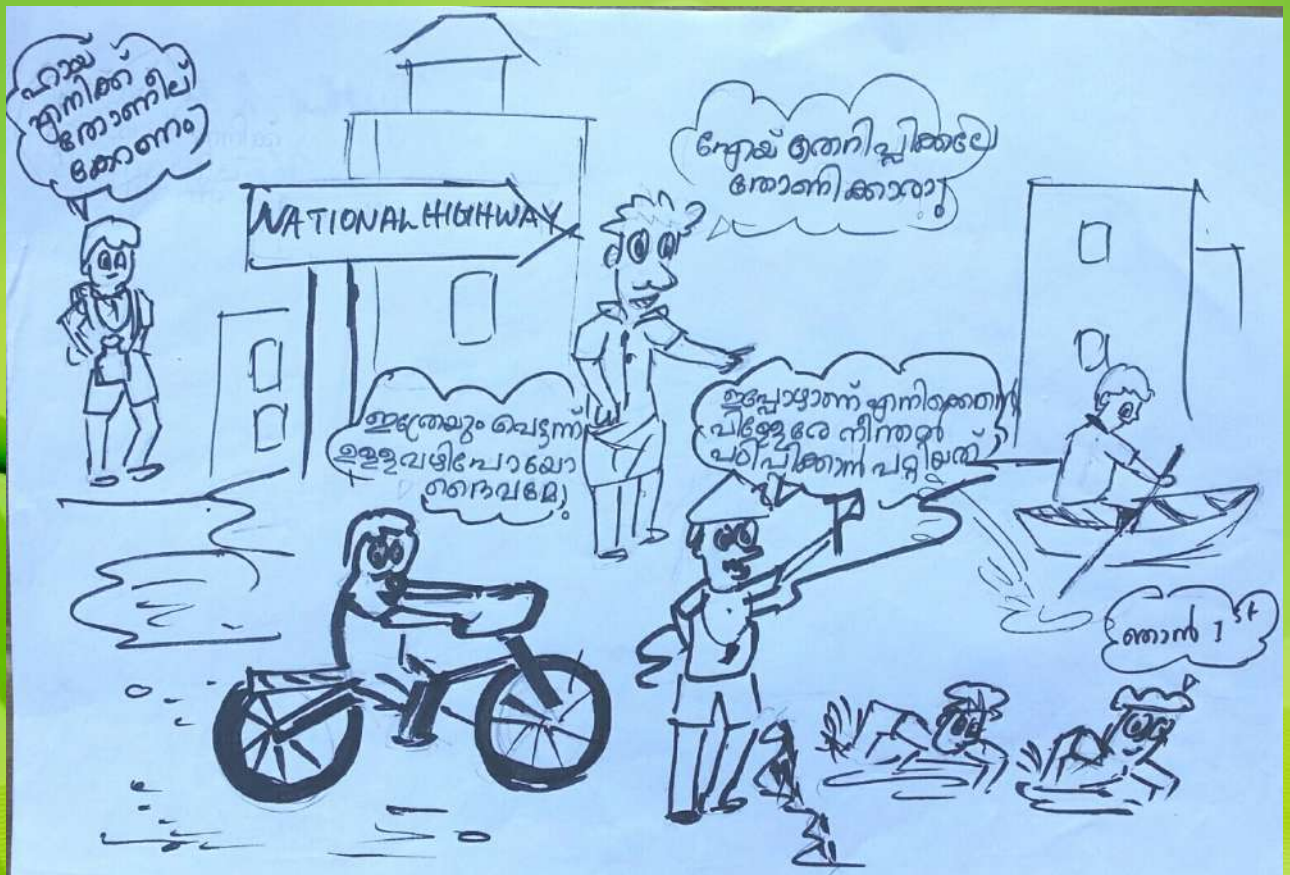 ഹായ്
എനിക്ക്
തോണില്
കേറണം
NATIONAL HIGHWAY
തോണിക്കാരാ!
ഇത്രേയും പെട്ടന്ന്
ഉള്ളവഴിപോയോ
ദൈവമേ!
ഇപ്പോഴാണ് എനിക്കെന്റെ
പിള്ളേരെ നീന്തൽ
പഠിപ്പിക്കാൻ പറ്റിയത്
ഞാൻ 1st